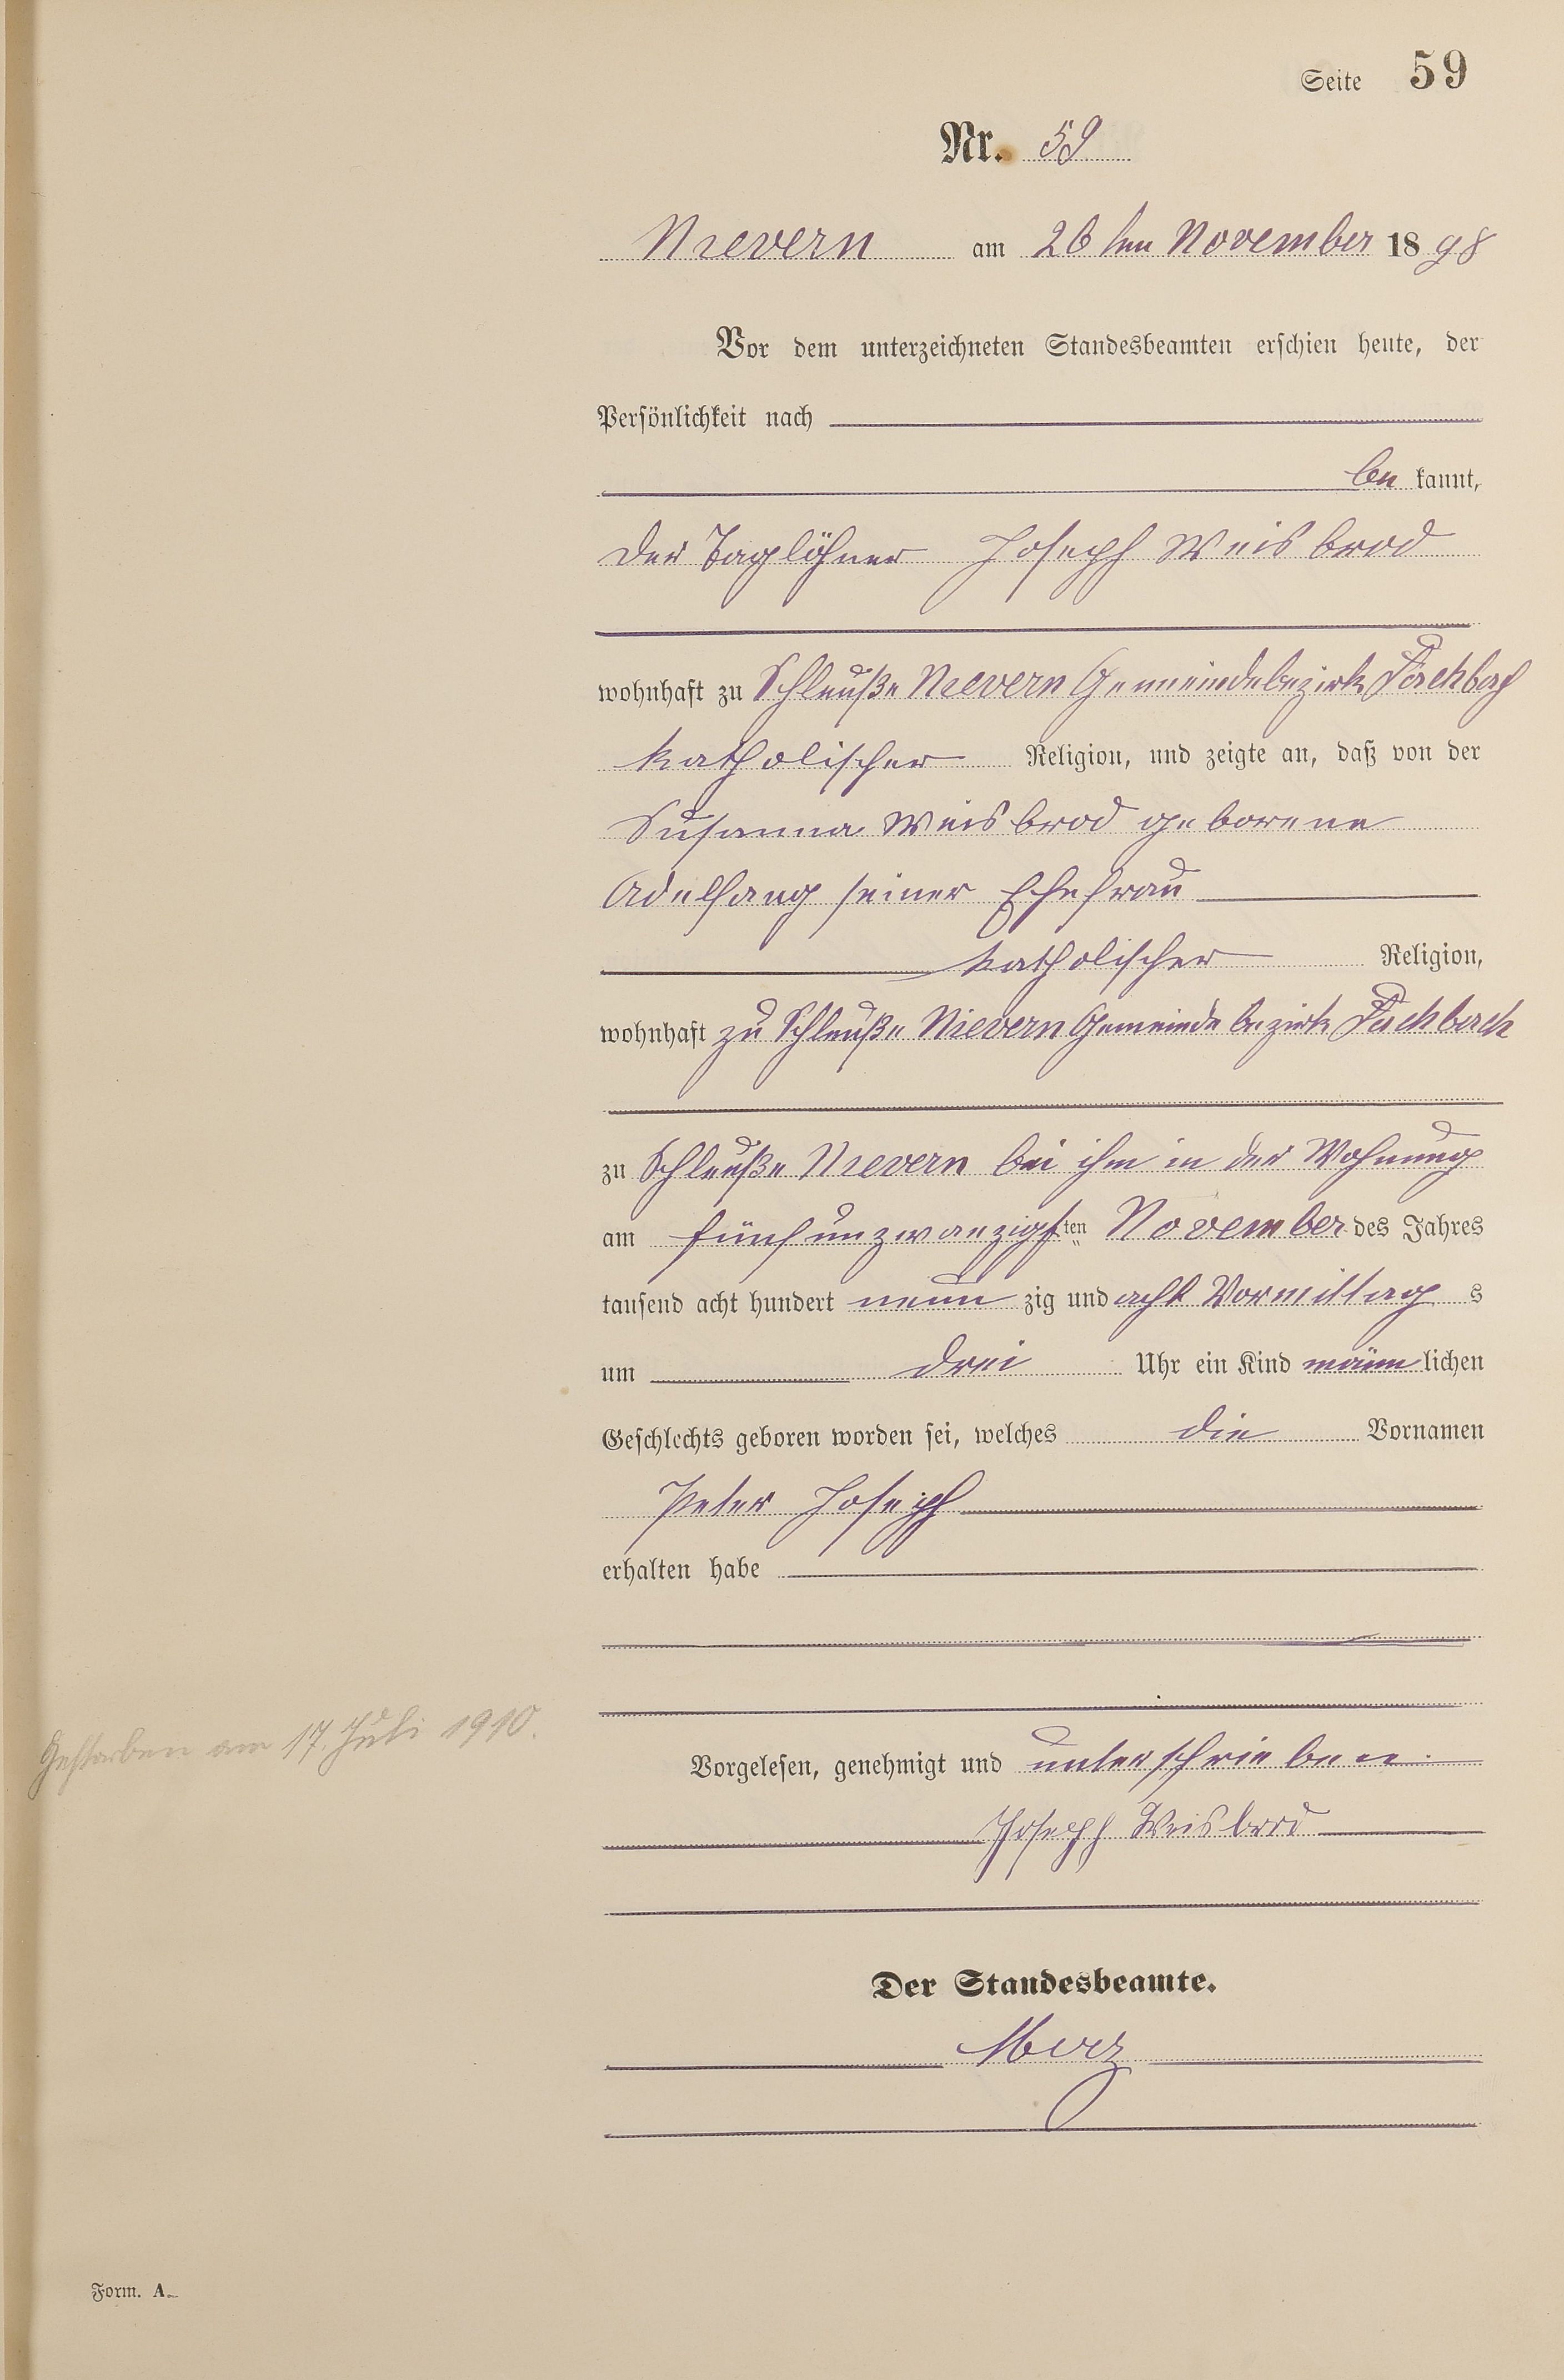 Seite 59
Nr. 59
Nievern am 26ten November 1898
Vor dem unterzeichneten Standesbeamten erschien heute, der
Persönlichkeit nach
bekannt,
der Taglöhner Joseph Weisbrod
wohnhaft zu Schleuße Nievern Gemeindebezirk Fachbach
katholischer Religion, und zeigte an, daß von der
Susanna Weisbrod geborene
Adelfang seiner Ehefrau
katholischer Religion,
wohnhaft zu Schleuße Nievern Gemeindebezirk Fachbach
zu Schleuße Nievern bei ihm in der Wohnung
am fünfunzwanzigsten November des Jahres
tausend acht hundert neunzig und acht Vormittags
um drei Uhr ein Kind männlichen
Geschlechts geboren worden sei, welches die Vornamen
Peter Joseph
erhalten habe
Gestorben am 17. Juli 1910.
Vorgelesen, genehmigt und unterschrieben.
Joseph Weisbrod
Der Standesbeamte.
Merz
Form. A.